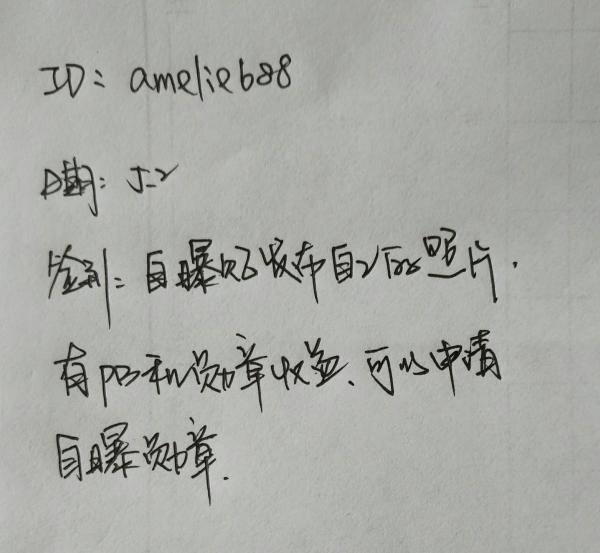 ID: amelie688
日期: 5-2
鉴别: 自曝吧发布自己的照片.
有PB和勋章收益、可以申请
自曝勋章.